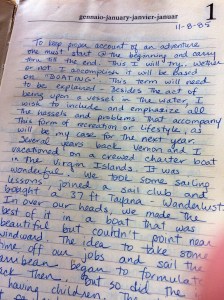 germaio-january-janvier-januar
1
11-8-85
To keep proper account of an adventure
one must start @ the beginning and carry
thru till the end. This I will try. Whether
or not I accomplish it will be BASED
on "BOATING". This term will need
to be explained - Besides the act of
being upon a vessel - the water, I
wish to include and emphasize all
the hassels and problems that accompany
this form of recreation or lifestyle, as
will be my case for the next year.
Several years back Vernon and I
vacationed on a crewed charter boat
in the Virgin Islands. It was
wonderful. We took some sailing
lessons, joined a sail club and
bought a 37 ft Tayana - Wanderlust.
In over our heads, we made the
best of it in a boat that was
beautiful but couldn't point near
windward. The idea to take some
time off our jobs and sail the
Carribean began to formulate
back then. But so did the
having children. The